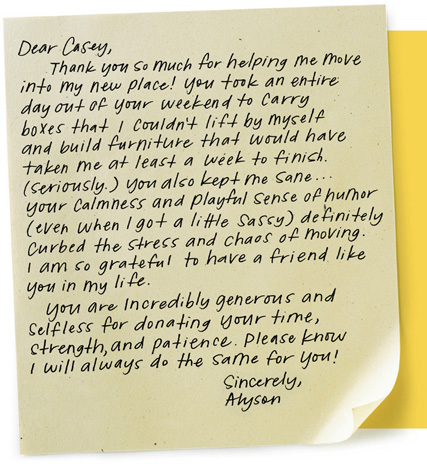 Dear Casey,
Thank you so much for helping me move
into my new place! You took an entire
day out of your weekend to carry
boxes that I couldn't lift by myself
and build furniture that would have
taken me at least a week to finish.
(seriously.) You also kept me sane...
your calmness and playful sense of humor
(even when I got a little sassy) definitely
curbed the stress and chaos of moving.
I am so grateful to have a friend like
you in my life.
You are incredibly generous and
selfless for donating your time,
strength, and patience. Please know
I will always do the same for you!
Sincerely,
Alyson